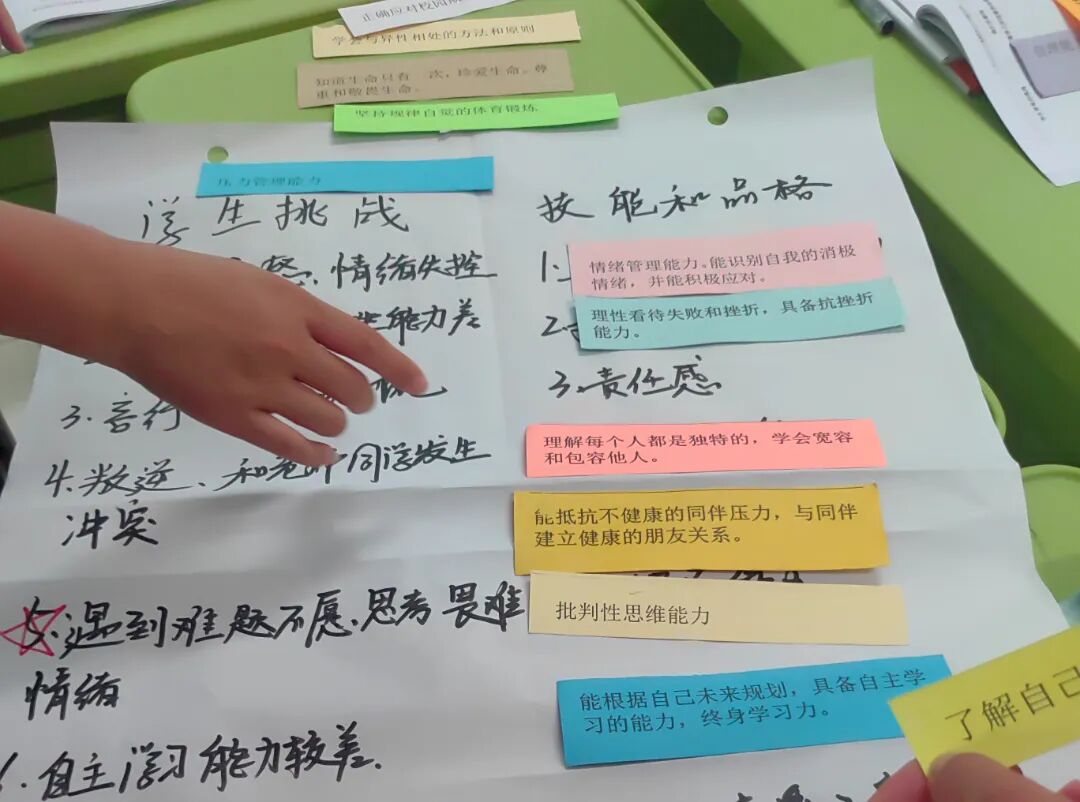 正确应对校园
学会与异性相处的方法和原则
知道生命只有一次，珍爱生命。尊
重和敬畏生命。
坚持规律自觉的体育锻炼
压力管理能力
学生挑战
情绪失控
能力差
3.言行
4.叛逆、和老师同学发生
冲突
5.遇到难题不愿思考畏难
情绪
自主学习能力较差.
技能和品格
1.
情绪管理能力。能识别自我的消极
情绪，并能积极应对。
2.
理性看待失败和挫折，具备抗挫折
能力。
3.责任感
理解每个人都是独特的，学会宽容
和包容他人。
能抵抗不健康的同伴压力，与同伴
建立健康的朋友关系。
批判性思维能力
能根据自己未来规划，具备自主学
习的能力，终身学习力。
了解自己